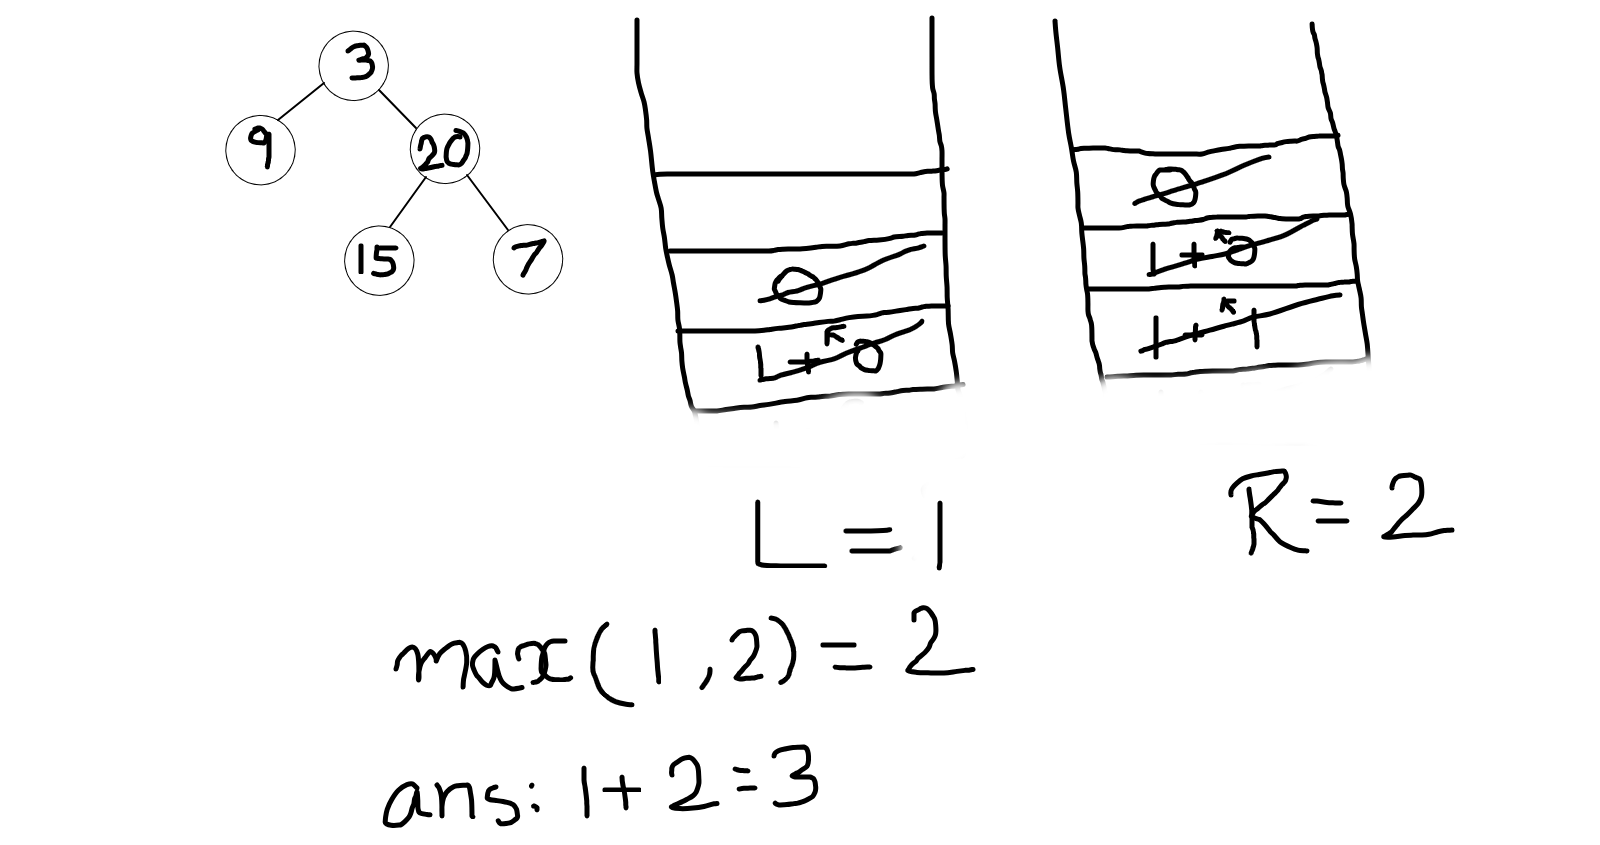 3
9
20
15
7
0
1+0
0
1+0
1+1
L=1
R=2
max(1,2)=2
ans: 1+2=3